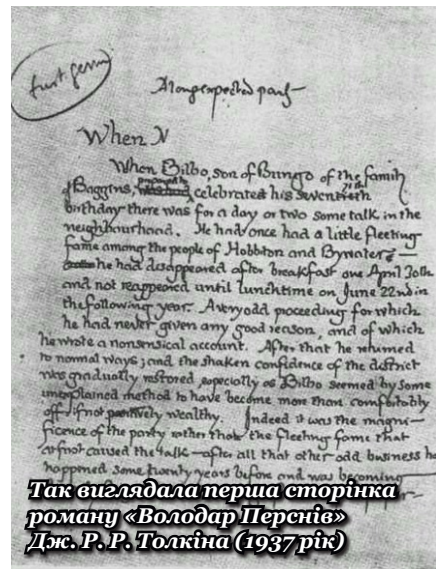 first germ
A long expected party
When N
When Bilbo, son of Bungo of the family
of Baggins, prepared to celebrate his seventieth
birthday there was for a day or two some talk in the
neighbourhood. He had once had a little fleeting
fame among the people of Hobbiton and Bywater —
he had disappeared after breakfast one April 30th
and not reappeared until lunchtime on June 22nd in
the following year. A very odd proceeding for which
he had never given any good reason, and of which
he wrote a nonsensical account. After that he returned
to normal ways; and the shaken confidence of the district
was gradually restored, especially as Bilbo seemed by some
unexplained method to have become more than comfortably
off, if not positively wealthy. Indeed it was the magni-
ficence of the party rather than the fleeting fame that
at first caused the talk — after all that other odd business had
happened some twenty years before and was becoming
Так виглядала перша сторінка
роману «Володар Перснів»
Дж. Р. Р. Толкіна (1937 рік)